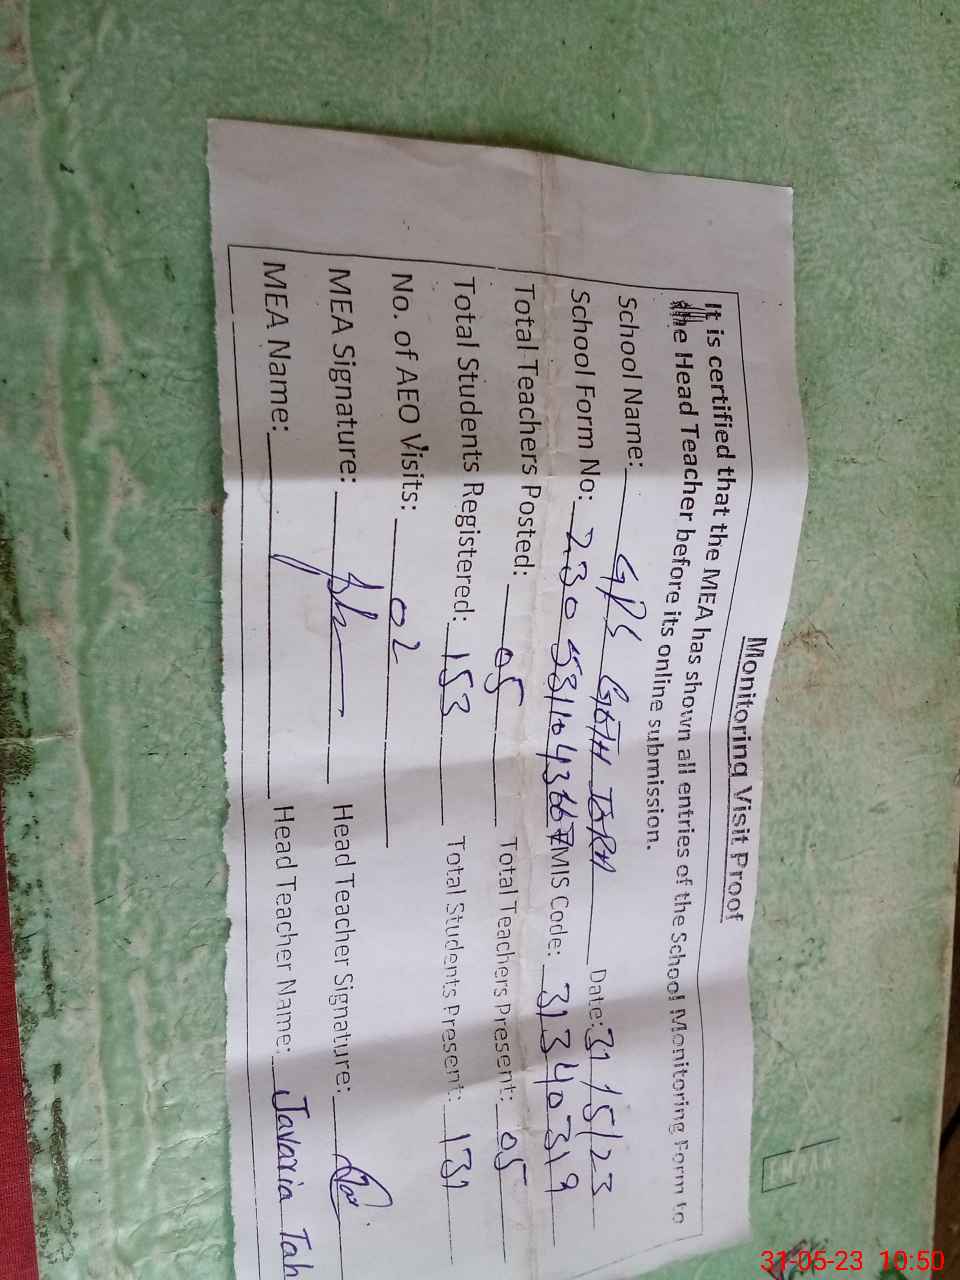 Monitoring Visit Proof
It is certified that the MEA has shown all entries of the School Monitoring Form to
the Head Teacher before its online submission.
School Name: GPS GOTH Date: 31/5/23
School Form No: MIS Code: 31340319
Total Teachers Posted: 05 Total Teachers Present: 05
Total Students Registered: 153 Total Students Present: 131
No. of AEO Visits: 02
MEA Signature: Head Teacher Signature:
MEA Name: Head Teacher Name: Javaria Tah
31-05-23 10:50